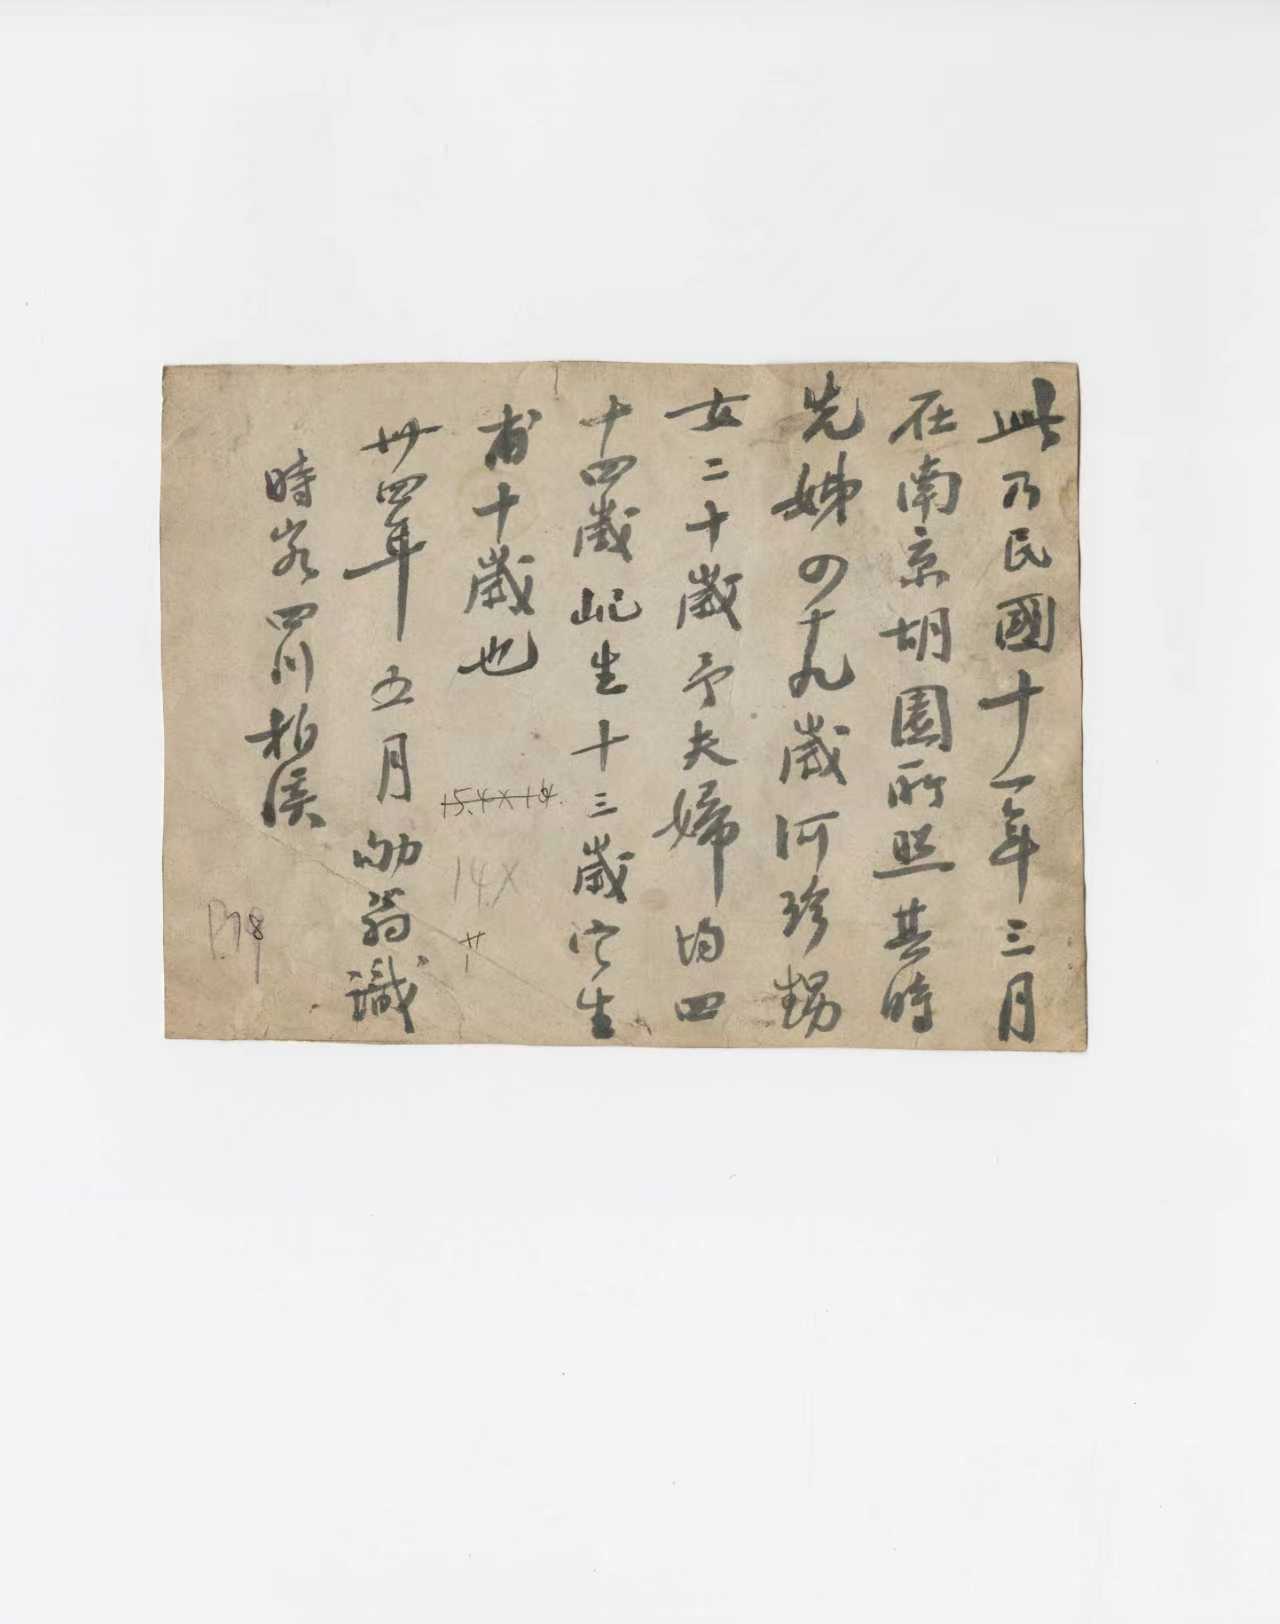 此乃民國十一年三月
在南京胡園所照其時
先姊四十九歲阿珍甥
女二十歲予夫婦均四
十四歲屺生十三歲它生
甫十歲也
卅四年五月勛翁識
時客四川柏溪
15.4×18.
14×
P.79